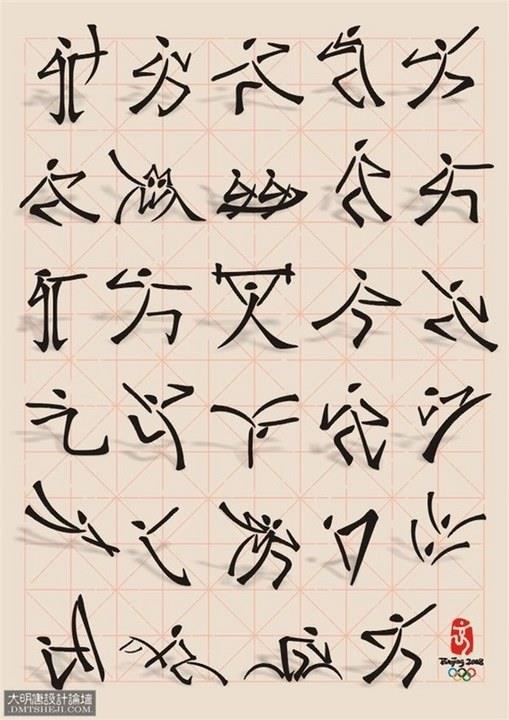 Beijing 2008
大明唐設計論壇
DMTSHEJI.COM